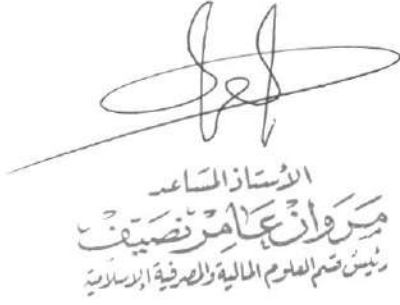 الأستاذ المساعد
مروان عامر نصيف
رئيس قسم العلوم المالية والمصرفية الإسلامية